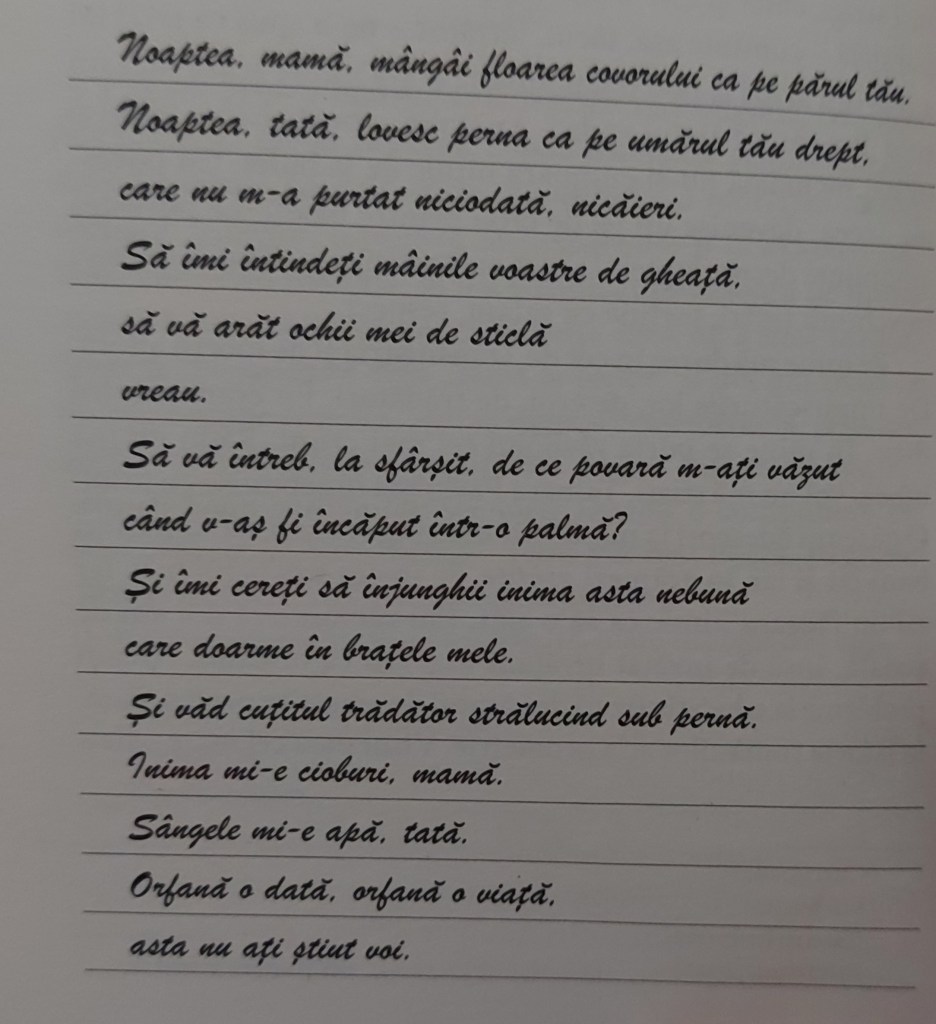 Noaptea, mamă, mângâi floarea covorului ca pe părul tău,
Noaptea, tată, lovesc perna ca pe umărul tău drept,
care nu m-a purtat niciodată, nicăieri.
Să îmi întindeți mâinile voastre de gheață,
să vă arăt ochii mei de sticlă
vreau.
Să vă întreb, la sfârșit, de ce povară m-ați văzut
când v-aș fi încăput într-o palmă?
Și îmi cereți să înjunghii inima asta nebună
care doarme în brațele mele.
Și văd cuțitul trădător strălucind sub pernă.
Inima mi-e cioburi, mamă.
Sângele mi-e apă, tată.
Orfană o dată, orfană o viață,
asta nu ați știut voi.